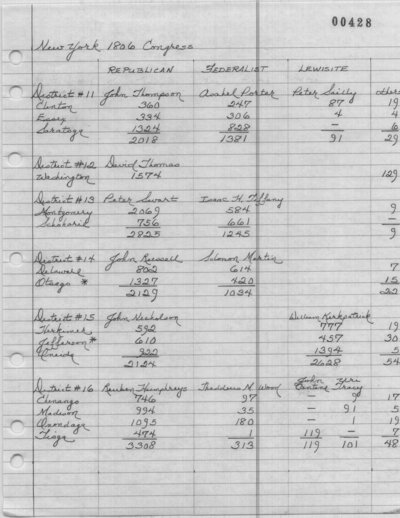 00428
New York 1806 Congress
REPUBLICAN FEDERALIST LEWISITE
District #11 John Thompson Asahel Porter Peter Sailly others
Clinton 360 247 87 19
Essex 334 306 4 4
Saratoga 1324 828 — 6
2018 1381 91 29
District #12 David Thomas
Washington 1574 129
District #13 Peter Swart Isaac H. Tiffany
Montgomery 2069 584 9
Schoharie 756 661 —
2825 1245 9
District #14 John Russell Solomon Martin
Delaware 802 614 7
Otsego * 1327 420 15
2129 1034 22
District #15 John Nicholson William Kirkpatrick
Herkimer 592 777 19
Jefferson* 610 457 30
Oneida 922 1394 5
2124 2628 54
District #16 Reuben Humphreys Thaddeus M. Wood John Uri Tracy
Chenango 746 97 — 9 17
Madison 994 35 — 91 5
Onondaga 1095 180 — 1 19
Tioga 474 1 119 — 7
3308 313 119 101 48